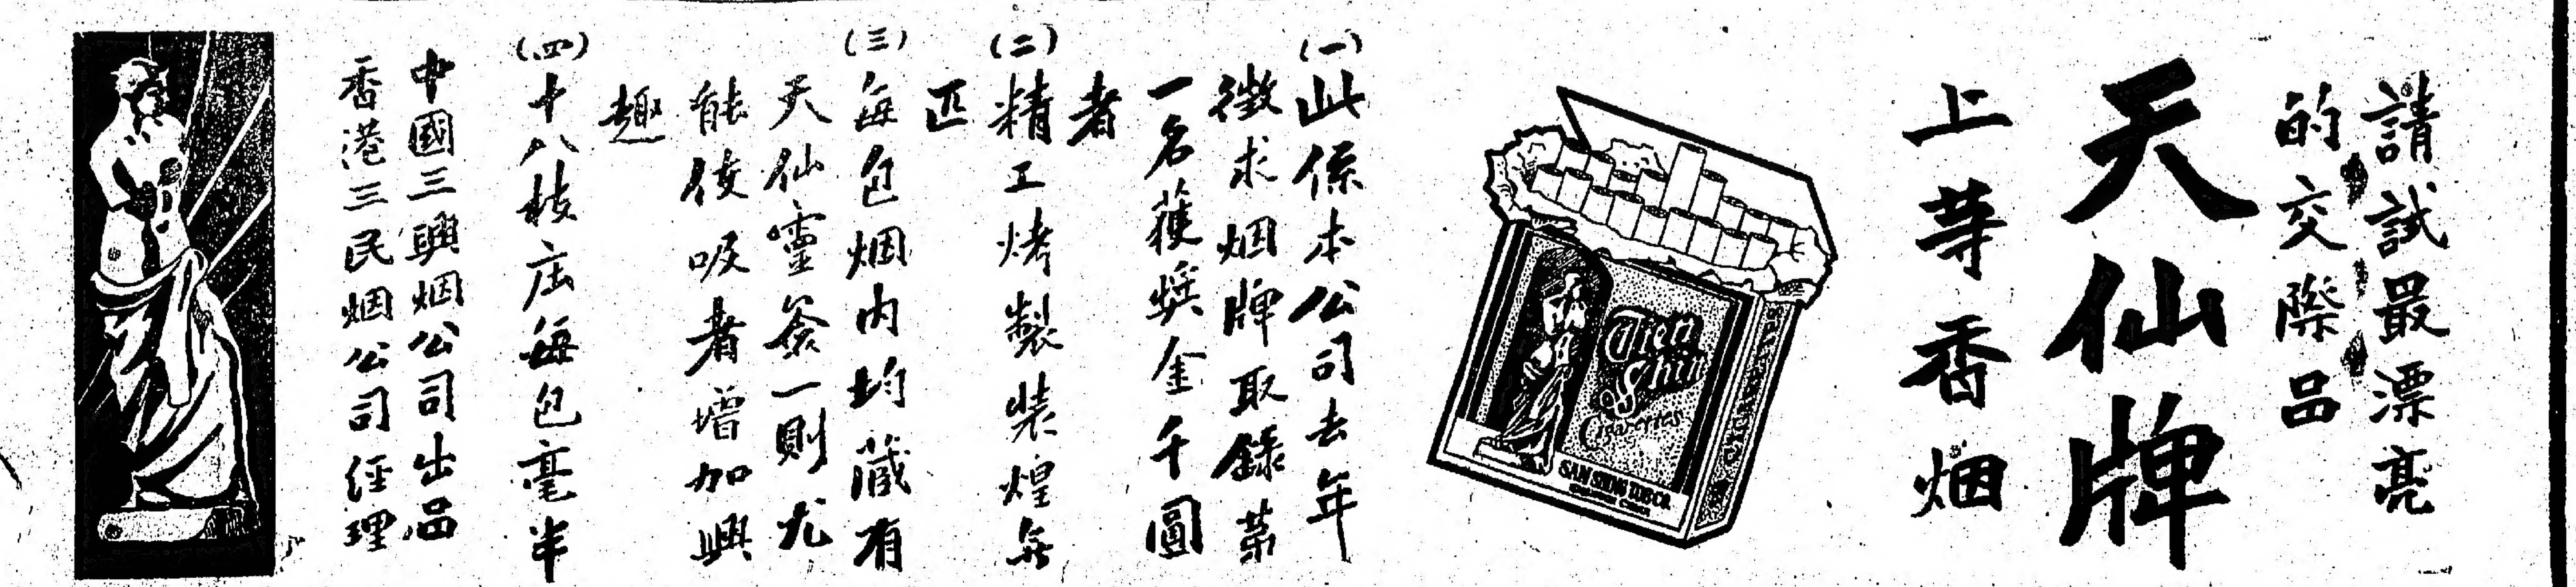 請試最漂亮
的交際品
天仙牌
上等香烟
Tien
Shin
Cigarettes
SAM SHING TOB CO.
CIGARETTES
(一)此係本公司去年
徵求烟牌取錄第
一名獲奬金千圓
者
(二)精工烤製裝煌無
匹
(三)每包烟内均藏有
天仙靈簽一則尤
能使吸者增加興
趣
(四)十八枝庄每包毫半
中國三興烟公司出品
香港三民烟公司經理